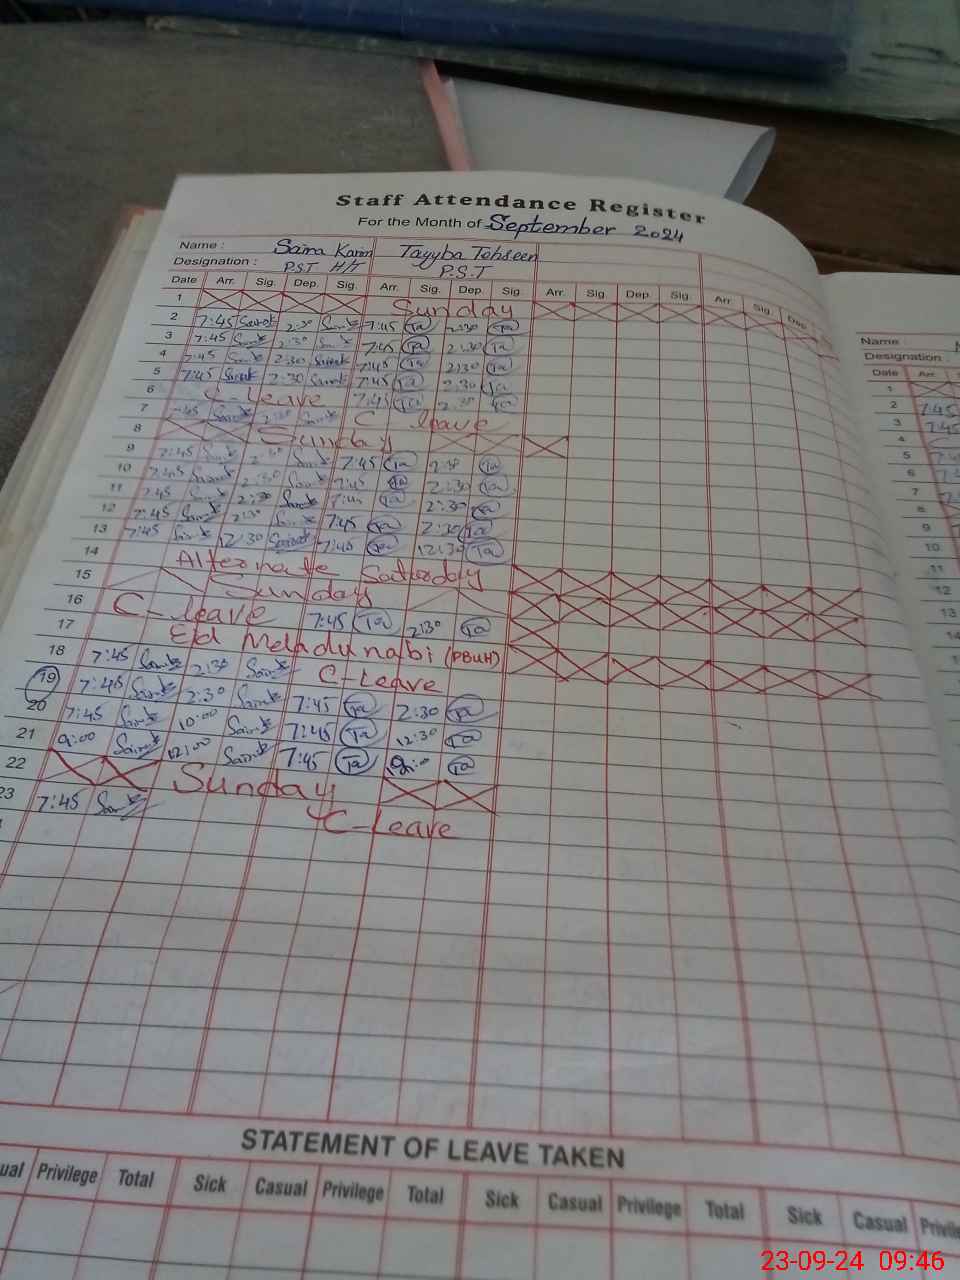 Staff Attendance Register
For the Month of September 2024
Name : Saima Karim Tayyba Tehseen
Designation : P.S.T H/T P.S.T
Date Arr. Sig. Dep. Sig. Arr. Sig. Dep. Sig. Arr. Sig. Dep. Sig. Arr. Sig. Dep.
1 Sunday
2 7:45 2:30 7:45 Ta 2:30 Ta
3 7:45 2:30 7:45 Ta 2:30 Ta
4 7:45 2:30 7:45 Ta 2:30 Ta
5 7:45 2:30 7:45 Ta 2:30 Ta
6 C-Leave 7:45 Ta 2:30 Ta
7 7:45 2:30 C leave
8 Sunday
9 7:45 2:30 7:45 Ta 2:30 Ta
10 7:45 2:30 7:45 Ta 2:30 Ta
11 7:45 2:30 7:45 Ta 2:30 Ta
12 7:45 2:30 7:45 Ta 2:30 Ta
13 7:45 12:30 7:45 Ta 12:30 Ta
14 Alternate Saturday
15 Sunday
16 C-leave 7:45 Ta 2:30 Ta
17 Eid Meladunabi (PBUH)
18 7:45 2:30 C-Leave
19 7:45 2:30 7:45 Ta 2:30 Ta
20 7:45 10:00 7:45 Ta 12:30 Ta
21 9:00 12:00 7:45 Ta Ta
22 Sunday
23 7:45 C-Leave
STATEMENT OF LEAVE TAKEN
Privilege Total Sick Casual Privilege Total Sick Casual Privilege Total Sick Casual
Name :
Designation :
Date Arr.
1
2 7:45
3 7:45
4
5
6
7
8
9
10
11
12
13
14
23-09-24 09:46